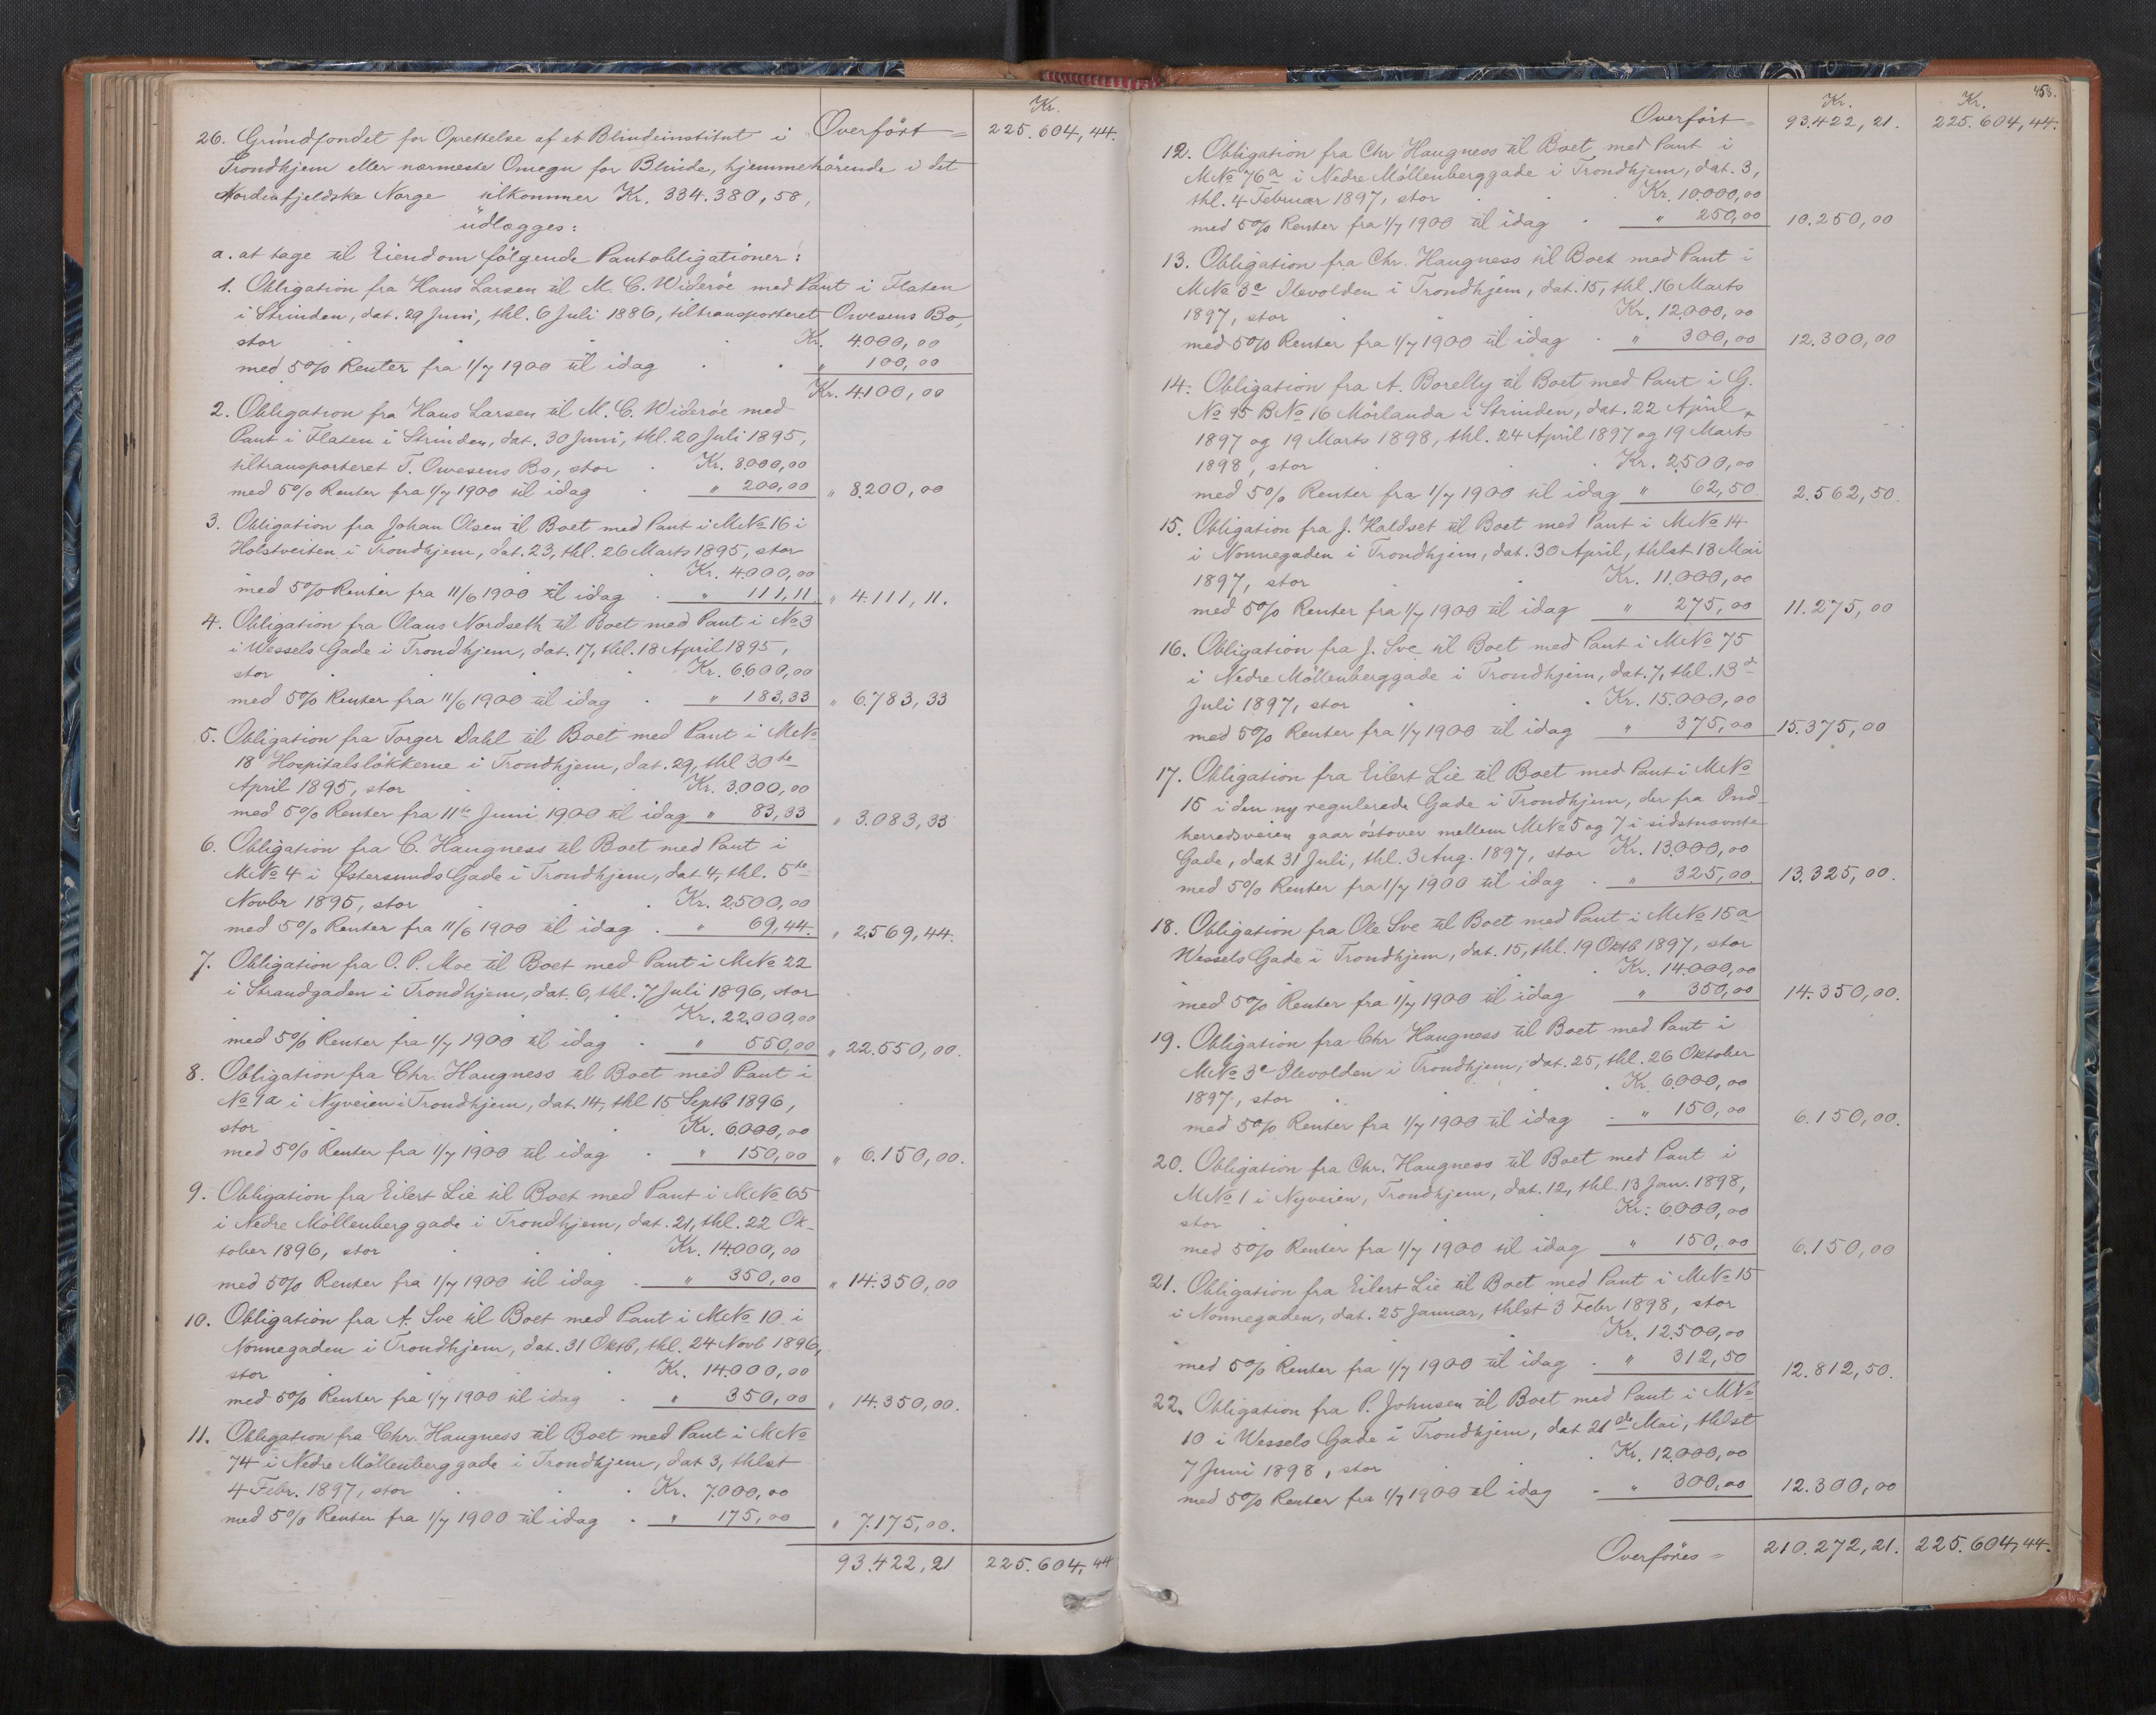 Kr.
26. Grundfondet for Oprettelse af et Blindeinstitut i Overfört = 225.604,44.
Trondhjem eller nærmeste Omegn for Blinde, hjemmehörende i det
Nordenfjeldske Norge tilkommer Kr. 334.380,58,
udlægges:
a. at tage til Eiendom fölgende Pantobligationer:
1. Obligation fra Hans Larsen til M. C. Wideröe med Pant i Flaten
i Strinden, dat. 29 Juni, thl. 6 Juli 1886, tiltransporteret Owesens Bo,
stor . . . Kr. 4.000,00
med 5% Renter fra 1/7 1900 til idag . . " 100,00
Kr. 4.100,00
2. Obligation fra Hans Larsen til M. C. Wideröe med
Pant i Flaten i Strinden, dat. 30 Juni, thl. 20 Juli 1895,
tiltransporteret T. Owesens Bo, stor . Kr. 8.000,00
med 5% Renter fra 1/7 1900 til idag . " 200,00 " 8.200,00
3. Obligation fra Johan Olsen til Boet med Pant i MNo 16 i
Holstveiten i Trondhjem, dat. 23, thl. 26 Marts 1895, stor
. Kr. 4.000,00
med 5% Renter fra 11/6 1900 til idag . " 111,11. " 4.111,11.
4. Obligation fra Olaus Nordseth til Boet med Pant i No 3
i Wessels Gade i Trondhjem, dat. 17, thl. 18 April 1895,
stor . . . Kr. 6.600,00
med 5% Renter fra 11/6 1900 til idag . " 183,33 " 6.783,33
5. Obligation fra Torger Dahl til Boet med Pant i MNo
18 Hospitalslökkerne i Trondhjem, dat. 29, thl 30te
April 1895, stor . . Kr. 3.000,00
med 5% Renter fra 11te Juni 1900 til idag " 83,33 " 3.083,33
6. Obligation fra C. Haugness til Boet med Pant i
MNo 4 i Østersunds Gade i Trondhjem, dat 4, thl. 5te
Novbr 1895, stor . . Kr. 2.500,00
med 5% Renter fra 11/6 1900 til idag . " 69,44. " 2.569,44.
7. Obligation fra O. P. Moe til Boet med Pant i MNo 22
i Strandgaden i Trondhjem, dat. 6, thl. 7 Juli 1896, stor
. . . Kr. 22.000,00
med 5% Renter fra 1/7 1900 til idag . " 550,00 " 22.550,00.
8. Obligation fra Chr. Haugness til Boet med Pant i
No 9a i Nyveien i Trondhjem, dat. 14, thl 15 Septb 1896,
stor . . . Kr. 6.000,00
med 5% Renter fra 1/7 1900 til idag . " 150,00 " 6.150,00.
9. Obligation fra Eilert Lie til Boet med Pant i MNo 65
i Nedre Möllenberggade i Trondhjem, dat. 21, thl. 22 Ok-
tober 1896, stor . . . Kr. 14.000,00
med 5% Renter fra 1/7 1900 til idag . " 350,00 " 14.350,00
10. Obligation fra A. Sve til Boet med Pant i MNo 10 i
Nonnegaden i Trondhjem, dat. 31 Oktb, thl. 24 Novb 1896,
stor . . . Kr. 14.000,00
med 5% Renter fra 1/7 1900 til idag . " 350,00 " 14.350,00.
11. Obligation fra Chr. Haugness til Boet med Pant i MNo
74 i Nedre Möllenberggade i Trondhjem, dat 3, thlst
4 Febr. 1897, stor . . . Kr. 7.000,00
med 5% Renter fra 1/7 1900 til idag . " 175,00 " 7.175,00.
93.422,21 225.604,44
458.
Kr. Kr.
Overfört = 93.422,21. 225.604,44.
12. Obligation fra Chr Haugness til Boet med Pant i
MNo 76a i Nedre Möllenberggade i Trondhjem, dat. 3,
thl. 4 Februar 1897, stor . . Kr. 10.000,00
med 5% Renter fra 1/7 1900 til idag . " 250,00 10.250,00
13. Obligation fra Chr. Haugness til Boet med Pant i
MNo 3a Ilevolden i Trondhjem, dat. 15, thl. 16 Marts
1897, stor . . . Kr. 12.000,00
med 5% Renter fra 1/7 1900 til idag . " 300,00 12.300,00
14. Obligation fra A. Borelly til Boet med Pant i G.
No 95 BNo 16 Mörlanda i Strinden, dat. 22 April
1897 og 19 Marts 1898, thl. 24 April 1897 og 19 Marts
1898, stor . . Kr. 2.500,00
med 5% Renter fra 1/7 1900 til idag " 62,50. 2.562,50.
15. Obligation fra J. Haldset til Boet med Pant i MNo 14
i Nonnegaden i Trondhjem, dat. 30 April, thlst 18 Mai
1897, stor . . Kr. 11.000,00
med 5% Renter fra 1/7 1900 til idag " 275,00 11.275,00
16. Obligation fra J. Sve til Boet med Pant i MNo 75
i Nedre Möllenberggade i Trondhjem, dat. 7, thl. 13de
Juli 1897, stor . . Kr. 15.000,00
med 5% Renter fra 1/7 1900 til idag " 375,00 15.375,00
17. Obligation fra Eilert Lie til Boet med Pant i MNo
15 i den ny regulerede Gade i Trondhjem, der fra Ind-
herredsveien gaar östover mellem MNo 5 og 7 i sidstnævnte
Gade, dat 31 Juli, thl. 3 Aug. 1897, stor Kr. 13.000,00
med 5% Renter fra 1/7 1900 til idag . " 325,00. 13.325,00.
18. Obligation fra Ole Sve til Boet med Pant i MNo 15a
Wessels Gade i Trondhjem, dat. 15, thl. 19 Oktb 1897, stor
. . . Kr. 14.000,00
med 5% Renter fra 1/7 1900 til idag " 350,00 14.350,00.
19. Obligation fra Chr Haugness til Boet med Pant i
MNo 3c Ilevolden i Trondhjem, dat. 25, thl. 26 Oktober
1897, stor . . . Kr. 6.000,00
med 5% Renter fra 1/7 1900 til idag . " 150,00 6.150,00.
20. Obligation fra Chr. Haugness til Boet med Pant i
MNo 1 i Nyveien, Trondhjem, dat. 12, thl. 13 Jan. 1898,
stor . . . Kr. 6.000,00
med 5% Renter fra 1/7 1900 til idag " 150,00 6.150,00
21. Obligation fra Eilert Lie til Boet med Pant i MNo 15
i Nonnegaden, dat. 25 Januar, thlst 3 Febr 1898, stor
. . Kr. 12.500,00
med 5% Renter fra 1/7 1900 til idag . " 312,50 12.812,50.
22. Obligation fra P. Johnsen til Boet med Pant i MNo
10 i Wessels Gade i Trondhjem, dat 21de Mai, thlst
7 Juni 1898, stor . . Kr. 12.000,00
med 5% Renter fra 1/7 1900 til idag . " 300,00 12.300,00
Overföres = 210.272,21. 225.604,44.